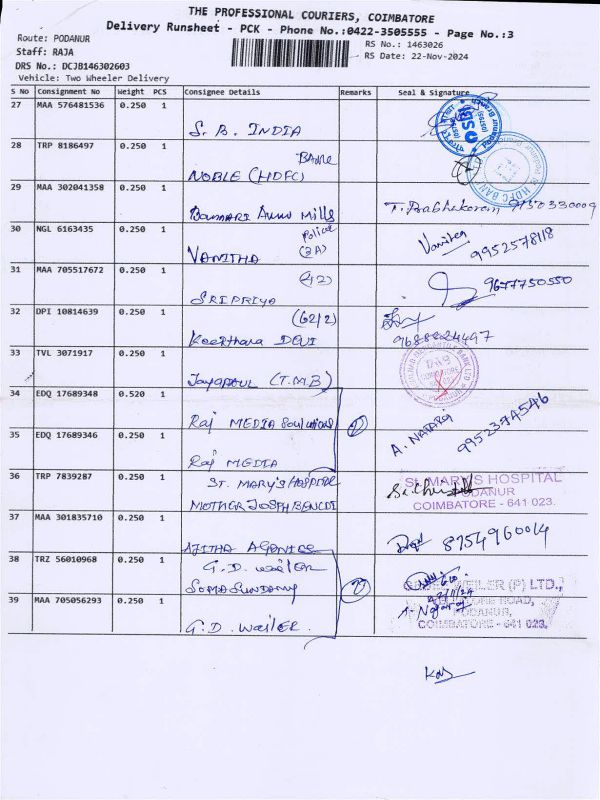 THE PROFESSIONAL COURIERS, COIMBATORE
Delivery Runsheet - PCK - Phone No.:0422-3505555 - Page No.:3
Route: PODANUR
RS No.: 1463026
Staff: RAJA
RS Date: 22-Nov-2024
DRS No.: DCJB146302603
Vehicle: Two Wheeler Delivery
S No Consignment No Weight PCS Consignee Details Remarks Seal & Signature
27 MAA 576481536 0.250 1
S. B. INDIA
28 TRP 8186497 0.250 1
Bank
NOBLE (HDFC)
HDFC BAN
29 MAA 302041358 0.250 1
Bannari Amm Mills T. Prabhakaran 9150330009
30 NGL 6163435 0.250 1
Police
VANITHA (2A) Vanitha 9952578118
31 MAA 705517672 0.250 1
(42) 9677750550
SRIPRIYA
32 DPI 10814639 0.250 1
(62/2)
Keerthana DEVI 9688824497
33 TVL 3071917 0.250 1
Jayapaul (T.M.B)
34 EDQ 17689348 0.520 1
Raj MEDIA Soulutions 2
A. NATARAJ 9952374546
35 EDQ 17689346 0.250 1
Raj MEDIA
36 TRP 7839287 0.250 1
ST. MARY'S HOSPITAL
MOTHER JOSPH BENCDI
St. MARY'S HOSPITAL
PODANUR
COIMBATORE - 641 023.
37 MAA 301835710 0.250 1
AJITHA AGENCIES 8754960014
38 TRZ 56010968 0.250 1
G. D. Wailer
SOMASUNDARY 2
WEILER (P) LTD.,
ROAD,
PODANUR,
COIMBATORE - 641 023.
A. Nataraj
39 MAA 705056293 0.250 1
G. D. Wailer